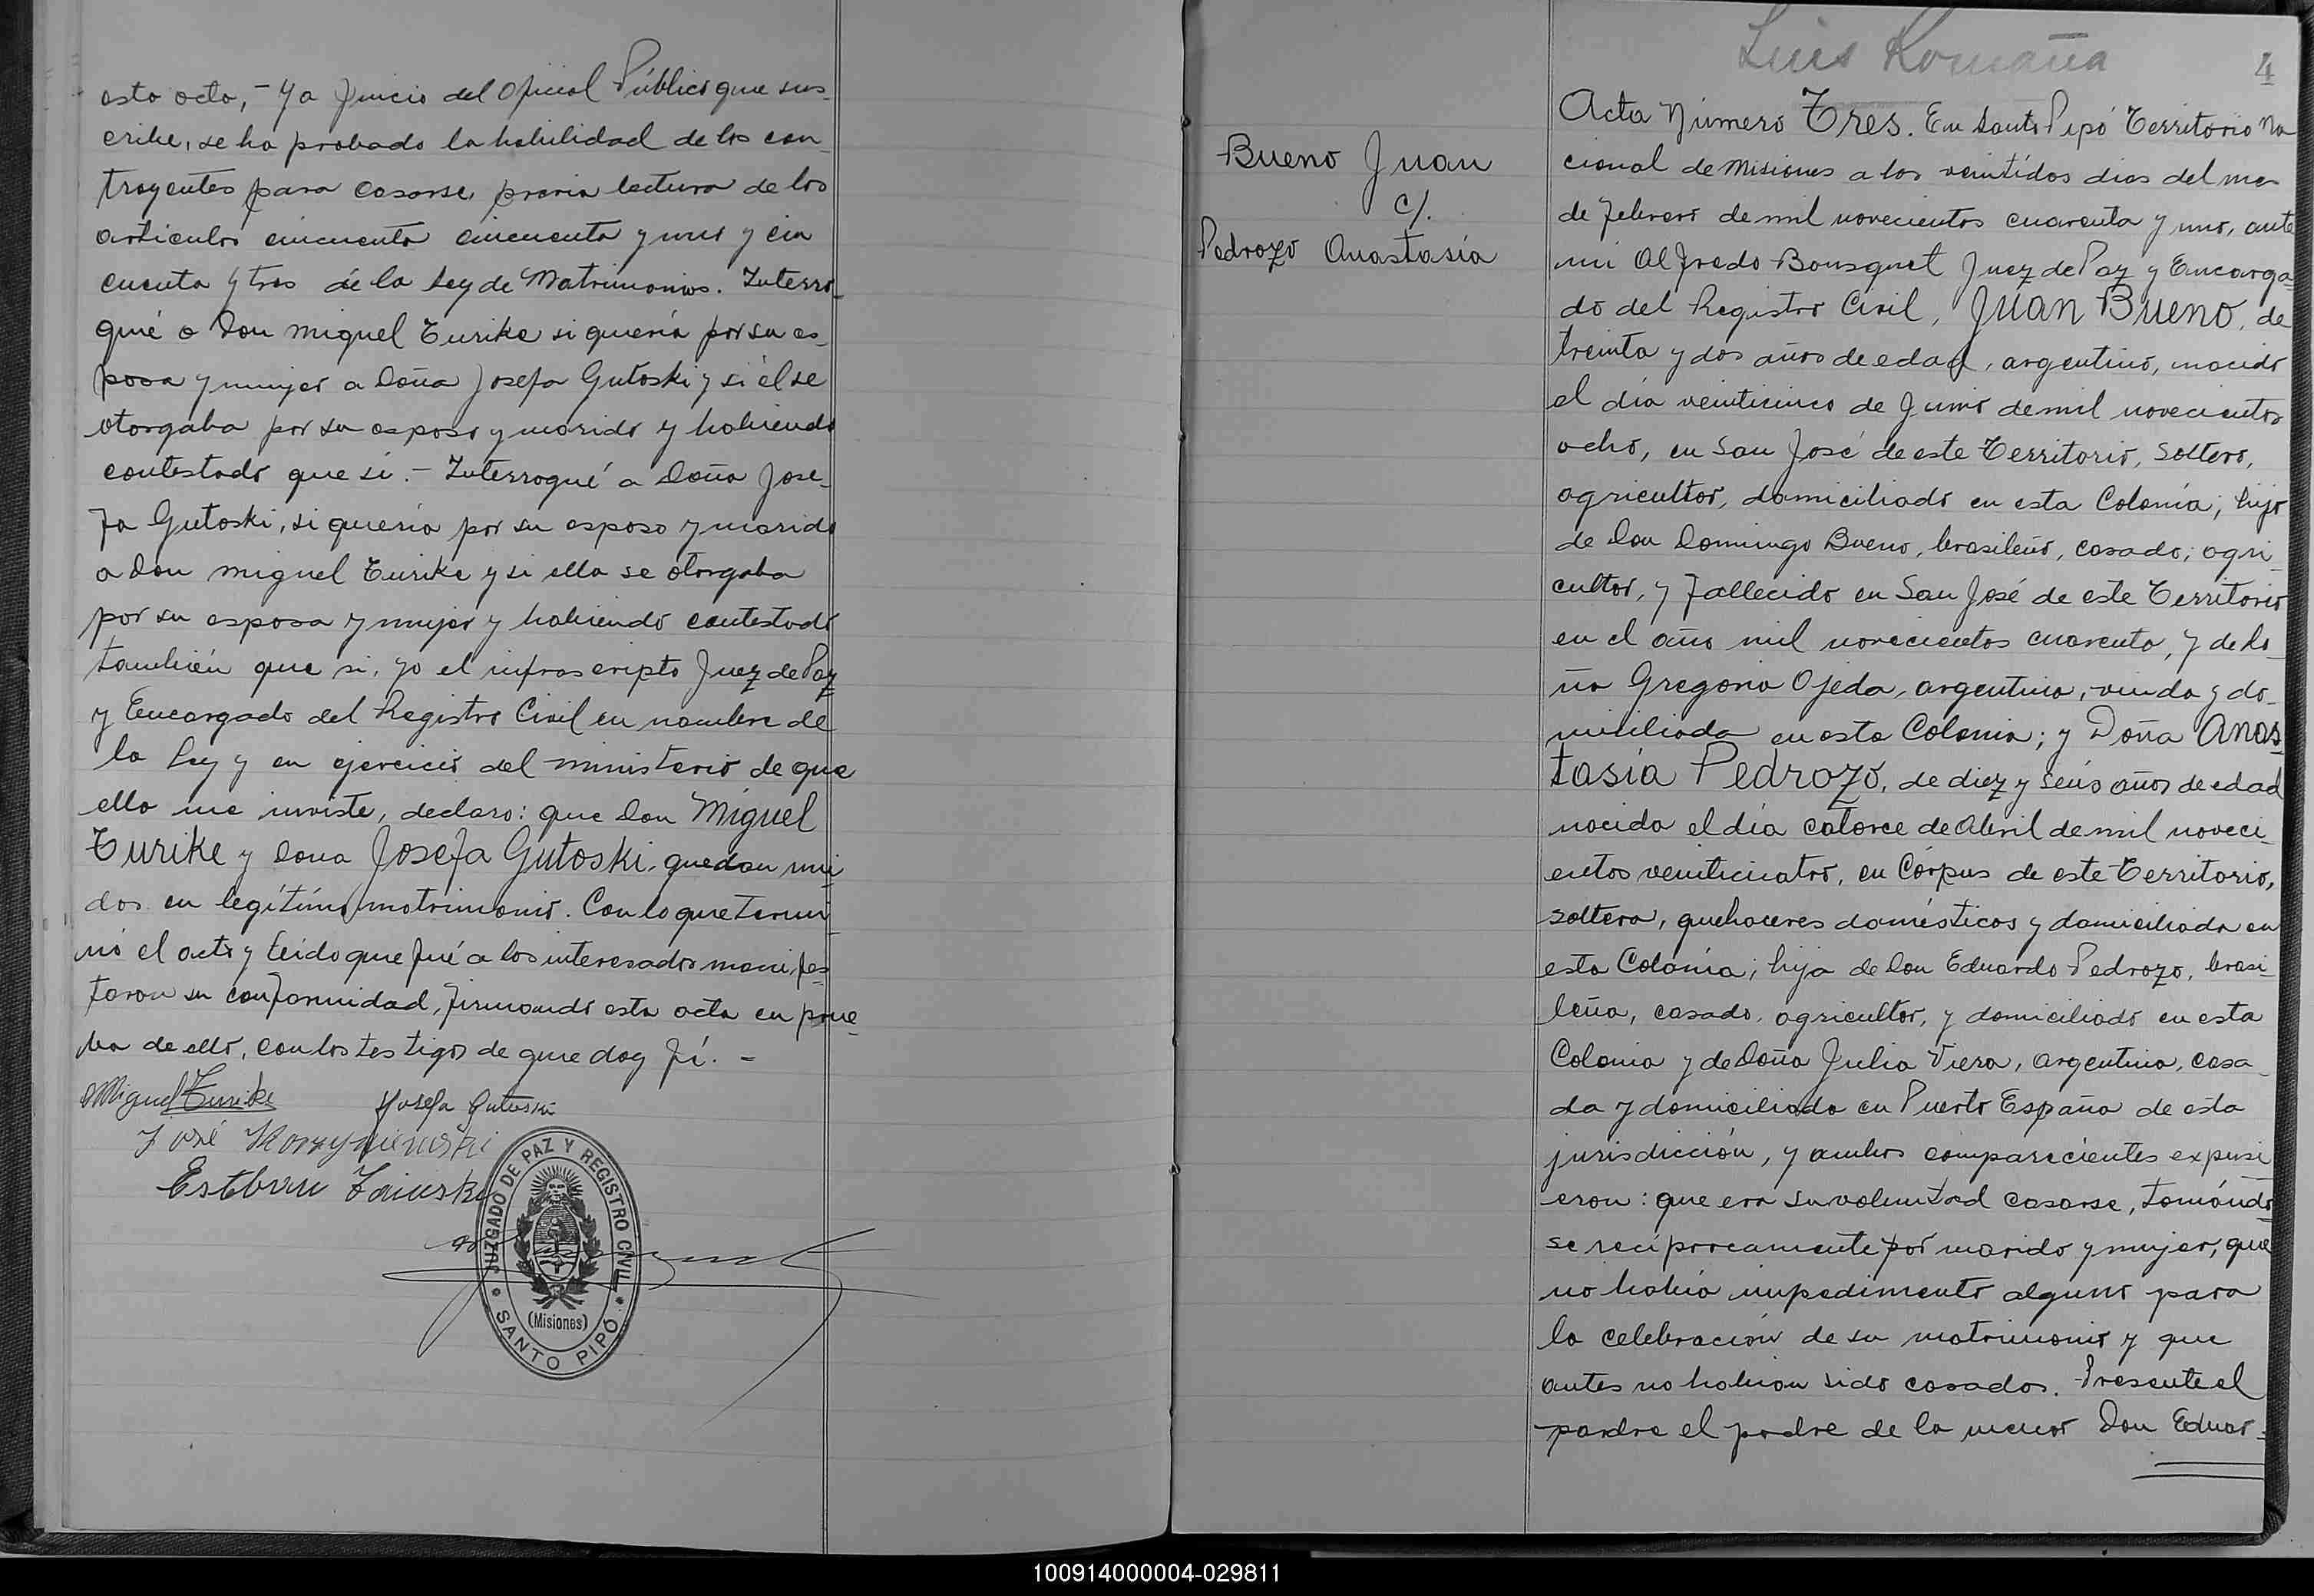 esta acta, - Y a juicio del Oficial Público que sus-
cribe, se ha probado la habilidad de los con-
trayentes para casarse, previa lectura de los
artículos cincuenta cincuenta y uno y cin
cuenta y tres de la Ley de Matrimonios. Interro-
gué a Don Miguel Turike si quería por su es-
posa y mujer a Doña Josefa Gutoski y si él se
otorgaba por su esposo y marido y habiendo
contestado que si. - Interrogué a Doña Jose-
fa Gutoski, si quería por su esposo y marido
a Don Miguel Turike y si ella se otorgaba
por su esposa y mujer y habiendo contestado
también que si, yo el infrascripto Juez de Paz
y Encargado del Registro Civil en nombre de
la Ley y en ejercicio del ministerio de que
ella me inviste, declaro: que Don Miguel
Turike y Doña Josefa Gutoski, quedan uni-
dos en legítimo matrimonio. Con lo que termi-
nó el acto y leído que fué a los interesados manifes-
taron su conformidad, firmando esta acta en prue-
ba de ello, con los testigos de que doy fé. -
Miguel Turike Josefa Gutoski
José
Esteban Zaiuski
JUZGADO DE PAZ Y REGISTRO CIVIL
(Misiones)
SANTO PIPÓ
Luis Romaña
4
Bueno Juan
c/.
Pedrozo Anastasia
Acta Número Tres. En Santo Pipó Territorio Na
cional de Misiones a los veintídos dias del mes
de Febrero de mil novecientos cuarenta y uno, ante
mi Alfredo Bousquet Juez de Paz y Encarga-
do del Registro Civil, Juan Bueno, de
treinta y dos años de edad, argentino, nacido
el día veinticinco de Junio de mil novecientos
ocho, en San José de este Territorio, soltero,
agricultor, domiciliado en esta Colonia; hijo
de Don Domingo Bueno, brasileño, casado, agri-
cultor, y fallecido en San José de este Territorio
en el año mil novecientos cuarenta, y de Do-
ña Gregoria Ojeda, argentina, viuda y do-
miciliada en esta Colonia; y Doña Anas-
tasia Pedrozo, de diez y seis años de edad
nacida el día catorce de Abril de mil noveci-
entos veinticuatro, en Córpus de este Territorio,
soltera, quehaceres domésticos y domiciliada en
esta Colonia; hija de Don Eduardo Pedrozo, brasi-
leño, casado, agricultor, y domiciliado en esta
Colonia y de Doña Julia Viera, argentina, casa-
da y domiciliada en Puerto España de esta
jurisdicción, y ambos comparecientes expusi
eron: que era su voluntad casarse, tomándo-
se recíprocamente por marido y mujer, que
no había impedimento alguno para
la celebración de su matrimonio y que
antes no habian sido casados. Presente el
pardre el padre de la menor Don Eduar-
100914000004-029811